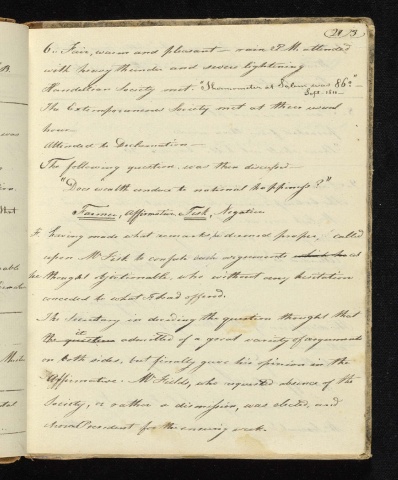 21/3
6 – Fair, warm and pleasant – rain P.M. attended
with heavy thunder and severe lightning
Handelian Society met. "Thermometer at Salem was 86°" –
Sept. 1811 –
The Extemporaneous Society met at their usual
hour
Attended to Declamation –
The following question was then discussed –
"Does wealth conduce to national happiness?"
Farmer, Affirmative Fisk, Negative
F. having made what remarks he deemed proper, called
upon Mr Fisk to confute such arguments as
he thought objectionable, who without any hesitation
conceded to what F. had offered.
The Secretary in deciding the question thought that
it
the question admitted of a great variety of arguments
on both sides, but finally gave his opinion in the
Affirmative. Mr Fields, who requested absence of the
Society, or rather a dismission, was elected, and
President for the ensuing week.